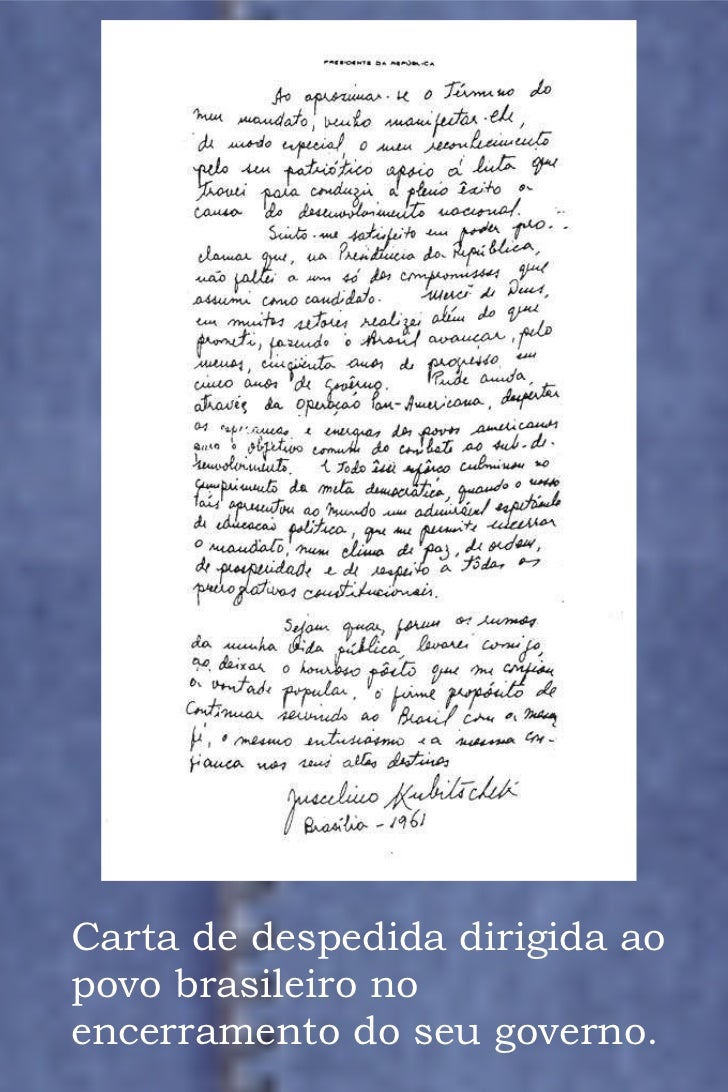 PRESIDENTE DA REPÚBLICA
Ao aproximar-se o Término do
meu mandato, venho manifestar-lhe,
de modo especial, o meu reconhecimento
pelo seu patriótico apoio á luta que
travei para conduzir a pleno êxito a
causa do desenvolvimento nacional.
Sinto-me satisfeito em poder pro-
clamar que, na Presidência da República,
não faltei a um só dos compromissos que
assumi como candidato. Mercê de Deus,
em muitos setores realizei além do que
prometi, fazendo o Brasil avançar, pelo
menos, cinqüenta anos de progresso em
cinco anos de Govêrno. Pude ainda,
através da Operação Pan-Americana, despertar
as esperanças e energias dos povos americanos
para o objetivo comum do combate ao sub-de-
senvolvimento. E todo êsse esfôrço culminou no
cumprimento da meta democrática, quando o nosso
País apresentou ao mundo um admirável espetáculo
de educação política, que me permite encerrar
o mandato, num clima de paz, de ordem,
de prosperidade e de respeito a tôdas as
prerogativas constitucionais.
Sejam quais forem os rumos
da minha vida pública, levarei comigo,
ao deixar o honroso pôsto que me confiou
a vontade popular, o firme propósito de
continuar servindo ao Brasil com a mesma
fé, o mesmo entusiasmo e a mesma con-
fiança nos seus altos destinos
Juscelino Kubitschek
Brasília - 1961
Carta de despedida dirigida ao
povo brasileiro no
encerramento do seu governo.